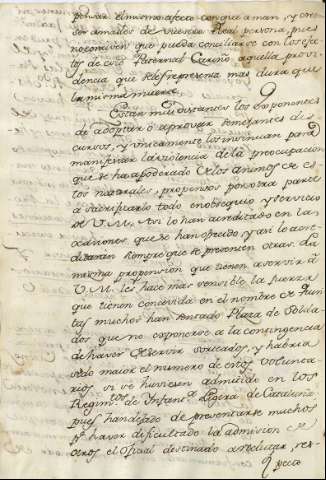 pensar el mismo afecto con que aman, y vene
ser amables de vuestra Real persona, pues
no conciven que pueda conciliarse con los efec
tos de ese Paternal Cariño aquella provi
dencia que se les representa mas dura que
la misma muerte.
Estan mui distantes los exponentes
de adoptar ò aprovar semejantes dis
cursos, y unicamente los insinuan para
manifestar la violencia de la preocupacion
que se ha apoderado de los animos de es
tos naturales, propensos por otra parte
à sacrificarlo todo en obsequio y servicio
de V. M. Asi lo han acreditado en las
ocasiones que se han ofrecido y asi lo acre
ditaran siempre que se presenten otras. La
misma propension que tienen a servir à
V. M. les hace mas sensible la fuerza
que tienen concevida en el nombre de Quin
tas muchos han sentado Plaza de Solda
dos que no exponerse a la contingencia
de haver de servir sorteados, y habria
sido maior el numero de estos volunta
rios si se huviesen admitido en los
Regim.tos de Infant.a Ligera de Cataluña
pues han dejado de presentarse muchos
p.r haver dificultado la admision de
otros el Oficial destinado a reclutar, res-
pecto